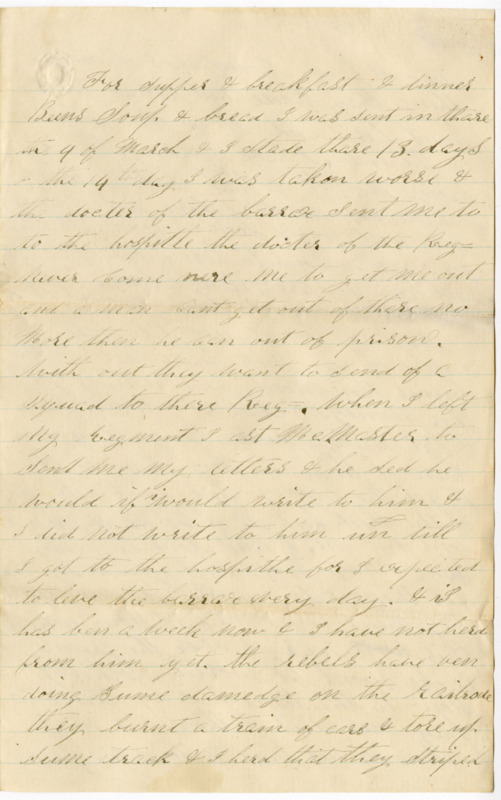 For supper & breakfast & dinner
Beens Soup & bread I was sent in thare
in 9 of March & I stade thare 13 days
& the 14th day I was takon worse & 
the docter of the barrax sent me to
to the hospitle the docter of the Reg=
never Come nere me to get me out
and a man Cant get out of there no
More then he can out of prison.
With out they want to send of a
squad to there Reg=. When I left
My Regment I ast McMaster to
Sent me My letters & he sed he
would if I would write to him &
I did not write to him un till
I got to the hospithe for I expected
to leve the barrax every day. & it
has ben a week now & I have not herd
from him yet. the rebels have ben
doing Sume damedge on the Railrode
they burnt a train of cars & tore up
sume track & I herd that they striped